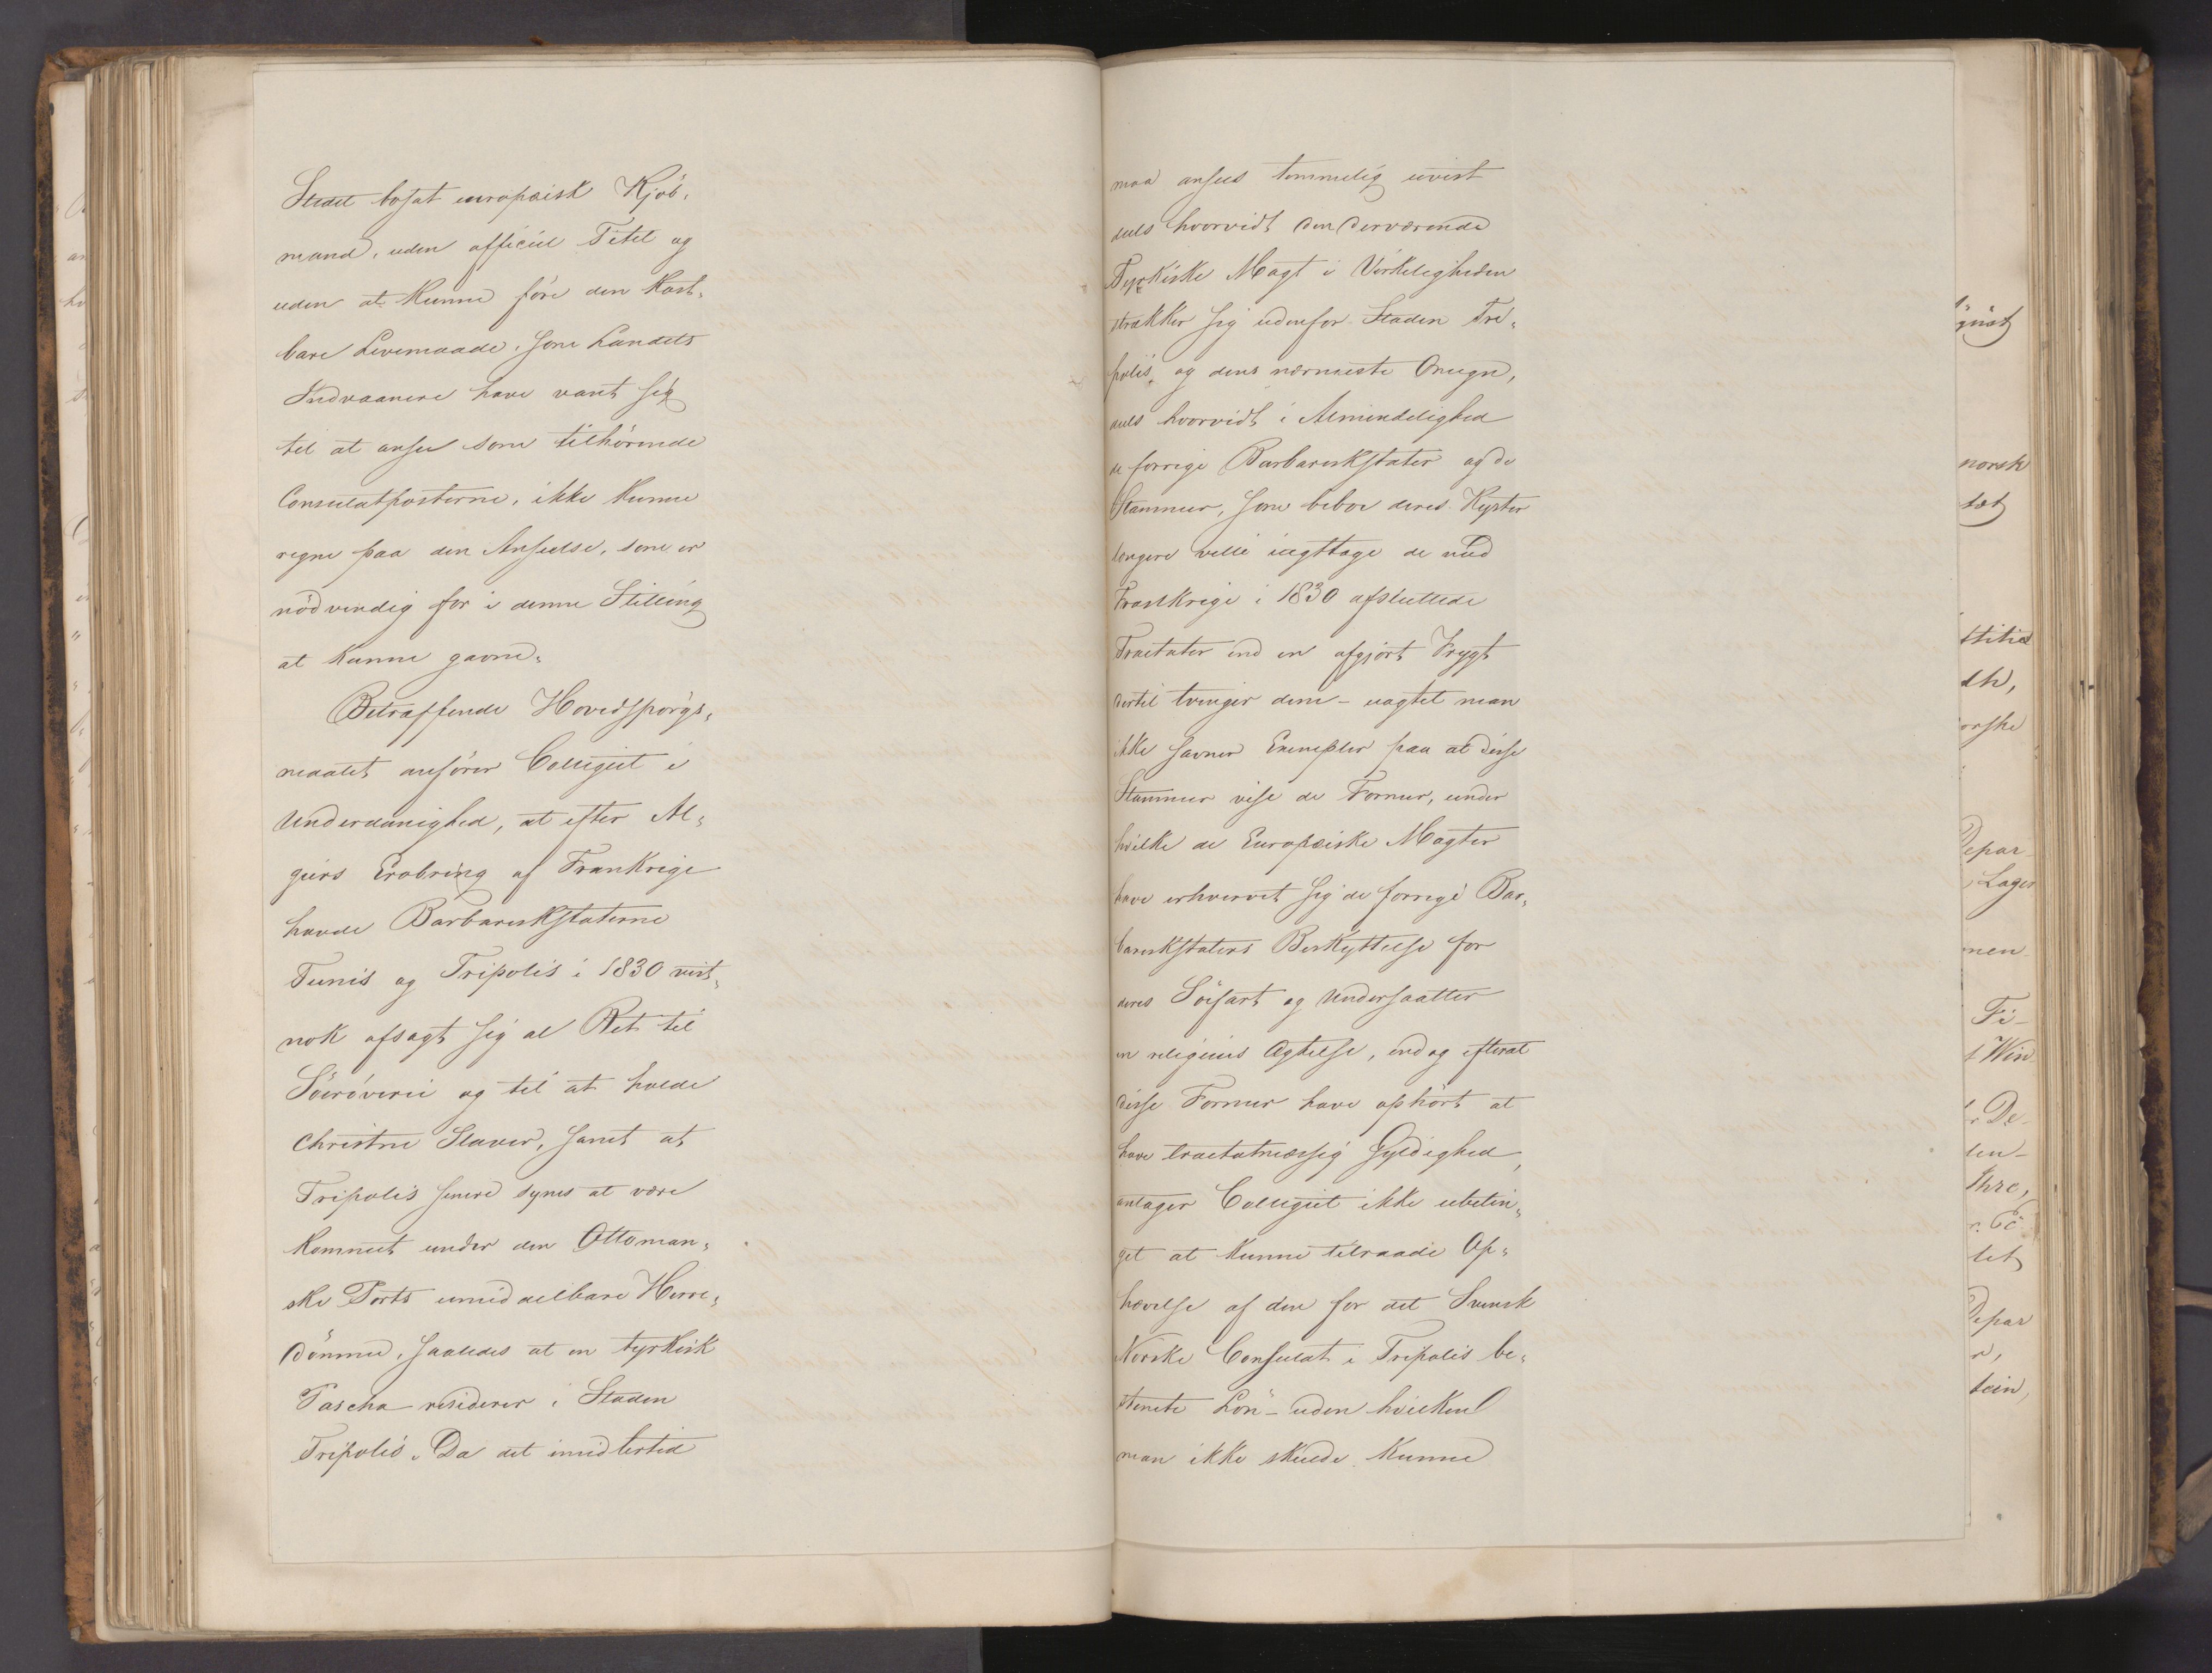 Stedet bosat europæisk Kjöb-
mand, uden officiel Titel og
uden at kunne före den kost-
bare Levemaade, som Landets
Indvaanere have vant sig
til at ansee som tilhörende
Consulatposterne, ikke kunne
regne paa den Anseelse, som er
nödvendig for i denne Stilling
at kunne gavne.
Betræffende Hovedspörgs-
maalet anförer Collegiet i
Underdanighed, at efter Al-
giers Erobring af Frankrige
havde Barbareskstaterne
Tunis og Tripolis i 1830 vist-
nok afsagt sig al Ret til
Söeröverie og til at holde
Christne Slaver, samt at
Tripolis senere synes at være
kommet under den Ottoman-
ske Ports umiddelbare Herre-
dömme, saaledes at en tyrkisk
Pascha residerer i Staden
Tripolis. Da det imidlertid
maa ansees temmelig uvist
deels hvorvidt den derværende
Tyrkiske Magt i Virkeligheden
strækker sig udenfor Staden Tri-
polis og dens nærmeste Omegn,
deels hvorvidt i Almindelighed
de forrige Barbareskstater og de
Stammer, som beboe deres Kyster
længere ville iagttage de med
Frankrige i 1830 afsluttede
Tractater end en afgjort Frygt
dertil tvinger dem – uagtet man
ikke savner Exempler paa at disse
Stammer vise de Former, under
hvilke de Europæiske Magter
have erhvervet sig de forrige Bar-
bareskstaters Beskyttelse for
deres Söefart og Undersaatter
en religieus Agtelse, endog efterat
disse Former have ophört at
have tractatmæssig Gyldighed,
antager Collegiet ikke ubetin-
get at kunne tilraade Op-
hævelse af den for det Svensk
Norske Consulat i Tripolis be-
stemte Lön – uden hvilken
man ikke skulde kunne
norsk
orske
Depar-
Lager
men
Fi-
Depar